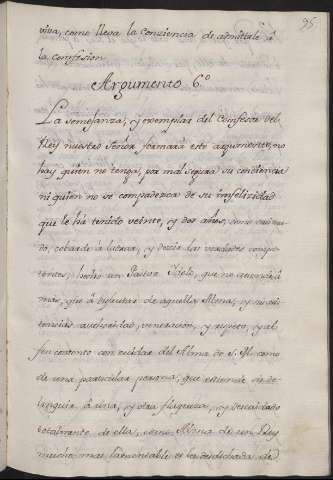 95
viva, como lleva la conciencia de admitirle á
la confesion
Argumento 6.º
La semejanza, y exemplar del Confesor del
Rey nuestro Señor formará este argumento, no
hay quien no tenga, por mal segura su conciencia
ni quien no se compadezca de su infelicidad
que le há tenido veinte, y dos años, como
do, cobarde á y decir las verdades compe-
tentes, hecho un Pastor Idolo, que no
mas, que á disfrutar de aquella Alma, y
tencias veneracion, y respeto, y al
fin contento con cuidar del Alma de S. M. como
de una particular persona, que
á una, y otra flaqueza, y descuidado
totalmente de ella, como Alma de un Rey
mucho mas lamentable es la desdichada de